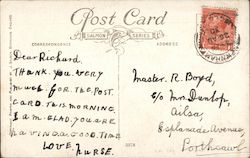 Post Card
SALMON SERIES
CORRESPONDENCE
ADDRESS
Dear Richard,
THANK YOU VERY
MUCH FOR THE POST
CARD THIS MORNING.
I am GLAD YOU ARE
HAVING A GOOD TIME
LOVE, NURSE.
Master. R. Boyd,
c/o Mrs Dunlop,
Ailsa,
Esplanade Avenue
Porthcawl